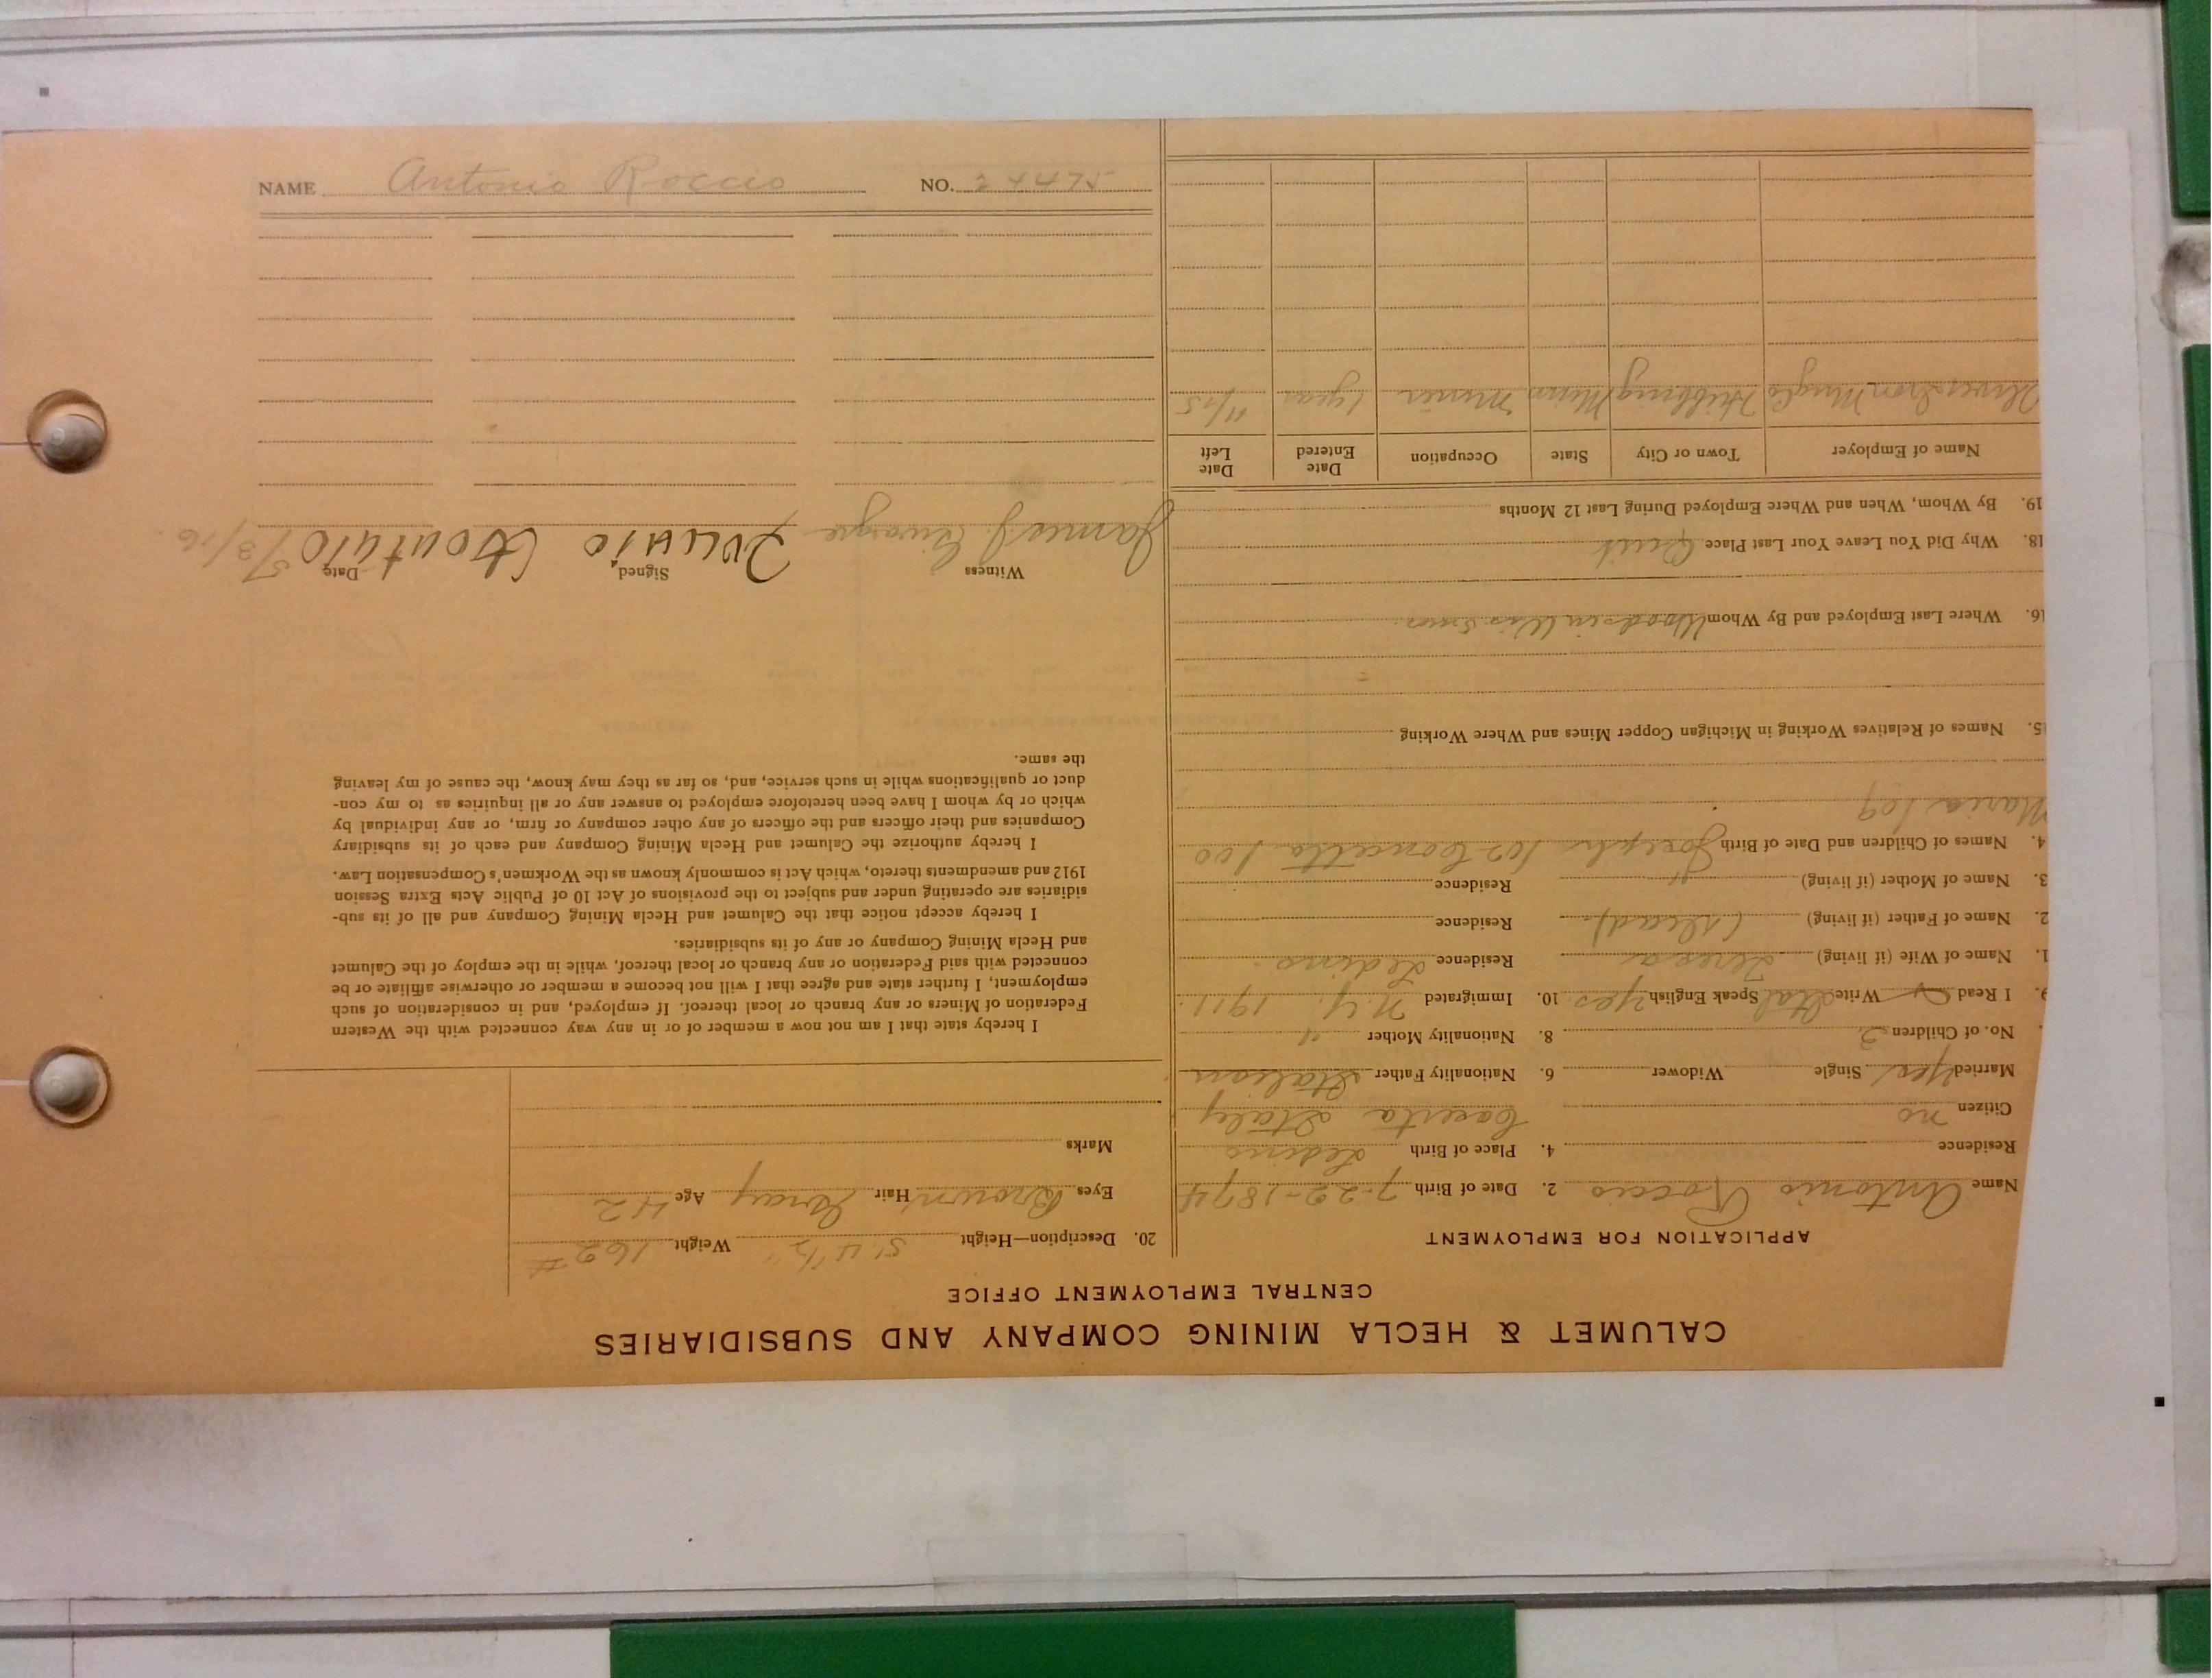 NAME Antonio Roccio NO. 24475
CALUMET & HECLA MINING COMPANY AND SUBSIDIARIES
CENTRAL EMPLOYMENT OFFICE
APPLICATION FOR EMPLOYMENT
Name Antonio Roccio 2. Date of Birth 7-22-1874
Residence 4. Place of Birth Ledino
Citizen no Caserta Italy
Married yes Single Widower 6. Nationality Father Italian
No. of Children 3 8. Nationality Mother "
9. I Read Write Ital Speak English yes 10. Immigrated N.Y. 1911
1. Name of Wife (if living) Teresa Residence Ledino
2. Name of Father (if living) (dead) Residence
3. Name of Mother (if living) " Residence
4. Names of Children and Date of Birth Joseph / 02 Concetta / 00
Maria / 09
15. Names of Relatives Working in Michigan Copper Mines and Where Working
16. Where Last Employed and By Whom Woods in Wis 3 mos.
18. Why Did You Leave Your Last Place Quit
19. By Whom, When and Where Employed During Last 12 Months
Name of Employer Town or City State Occupation Date Entered Date Left
Oliver Iron Mng Co Hibbing Minn Miner 1 year 11/15
20. Description—Height 5' 4 1/2" Weight 162 #
Eyes Brown Hair Gray Age 42
Marks
I hereby state that I am not now a member of or in any way connected with the Western
Federation of Miners or any branch or local thereof. If employed, and in consideration of such
employment, I further state and agree that I will not become a member or otherwise affiliate or be
connected with said Federation or any branch or local thereof, while in the employ of the Calumet
and Hecla Mining Company or any of its subsidiaries.
I hereby accept notice that the Calumet and Hecla Mining Company and all of its sub-
sidiaries are operating under and subject to the provisions of Act 10 of Public Acts Extra Session
1912 and amendments thereto, which Act is commonly known as the Workmen's Compensation Law.
I hereby authorize the Calumet and Hecla Mining Company and each of its subsidiary
Companies and their officers and the officers of any other company or firm, or any individual by
which or by whom I have been heretofore employed to answer any or all inquiries as to my con-
duct or qualifications while in such service, and, so far as they may know, the cause of my leaving
the same.
Witness Signed Date
James J.
5/3/16